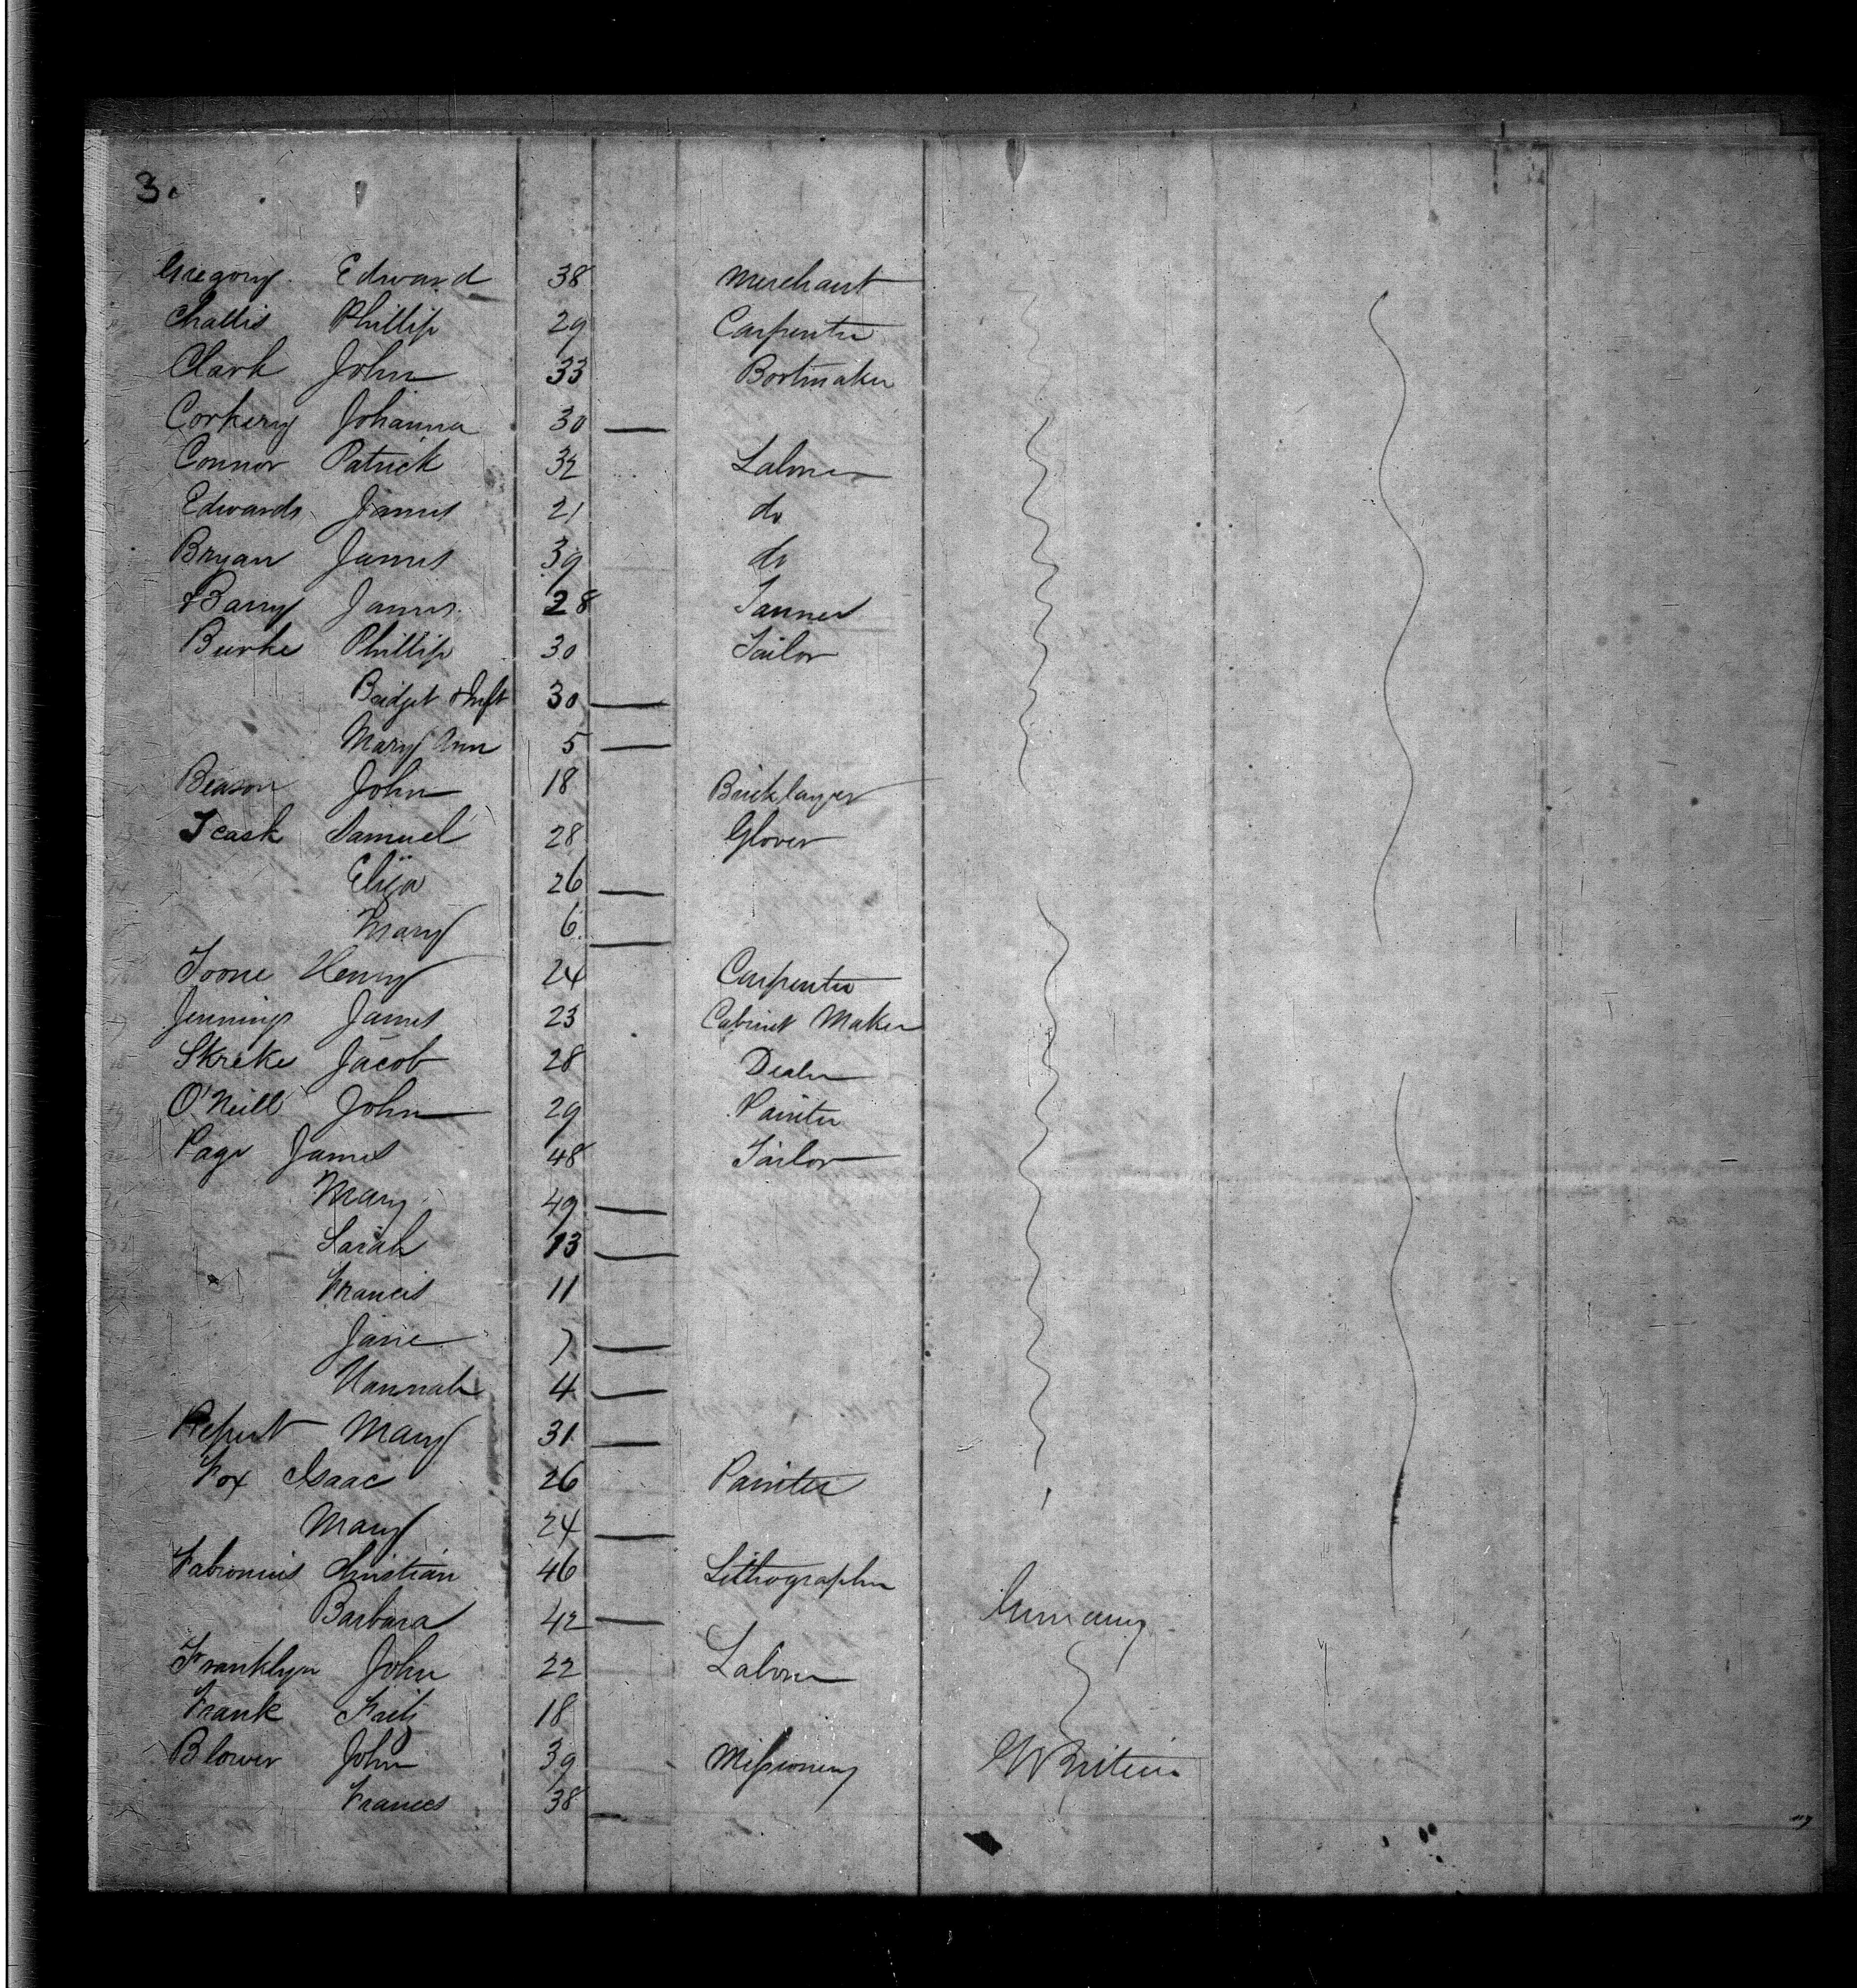 3.
Gregory Edward 38 Merchant
Challis Phillip 29 Carpenter
Clark John 33 Bootmaker
Corkery Johanna 30 —
Connor Patrick 32 Laborer
Edwards James 21 do
Bryan James 39 do
Barry James 28 Tanner
Burke Phillip 30 Tailor
Bridget 30 —
Mary Ann 5 —
Beason John 18 Bricklayer
Samuel 28 Glover
Eliza 26 —
Mary 6 —
Toone Henry 24 Carpenter
Jennings James 23 Cabinet Maker
Skreke Jacob 28 Dealer
O'Neill John 29 Painter
Page James 48 Tailor
Mary 49 —
Sarah 13 —
Francis 11
Jane 7 —
Hannah 4 —
Mary 31 —
Fox Isaac 26 Painter
Mary 24 —
Fabronius Christian 46 Lithographer
Barbara 42 — Germany
Franklyn John 22 Laborer
Frank Fritz 18
Blower John 39 Missionery Gt Britain
Frances 38 —